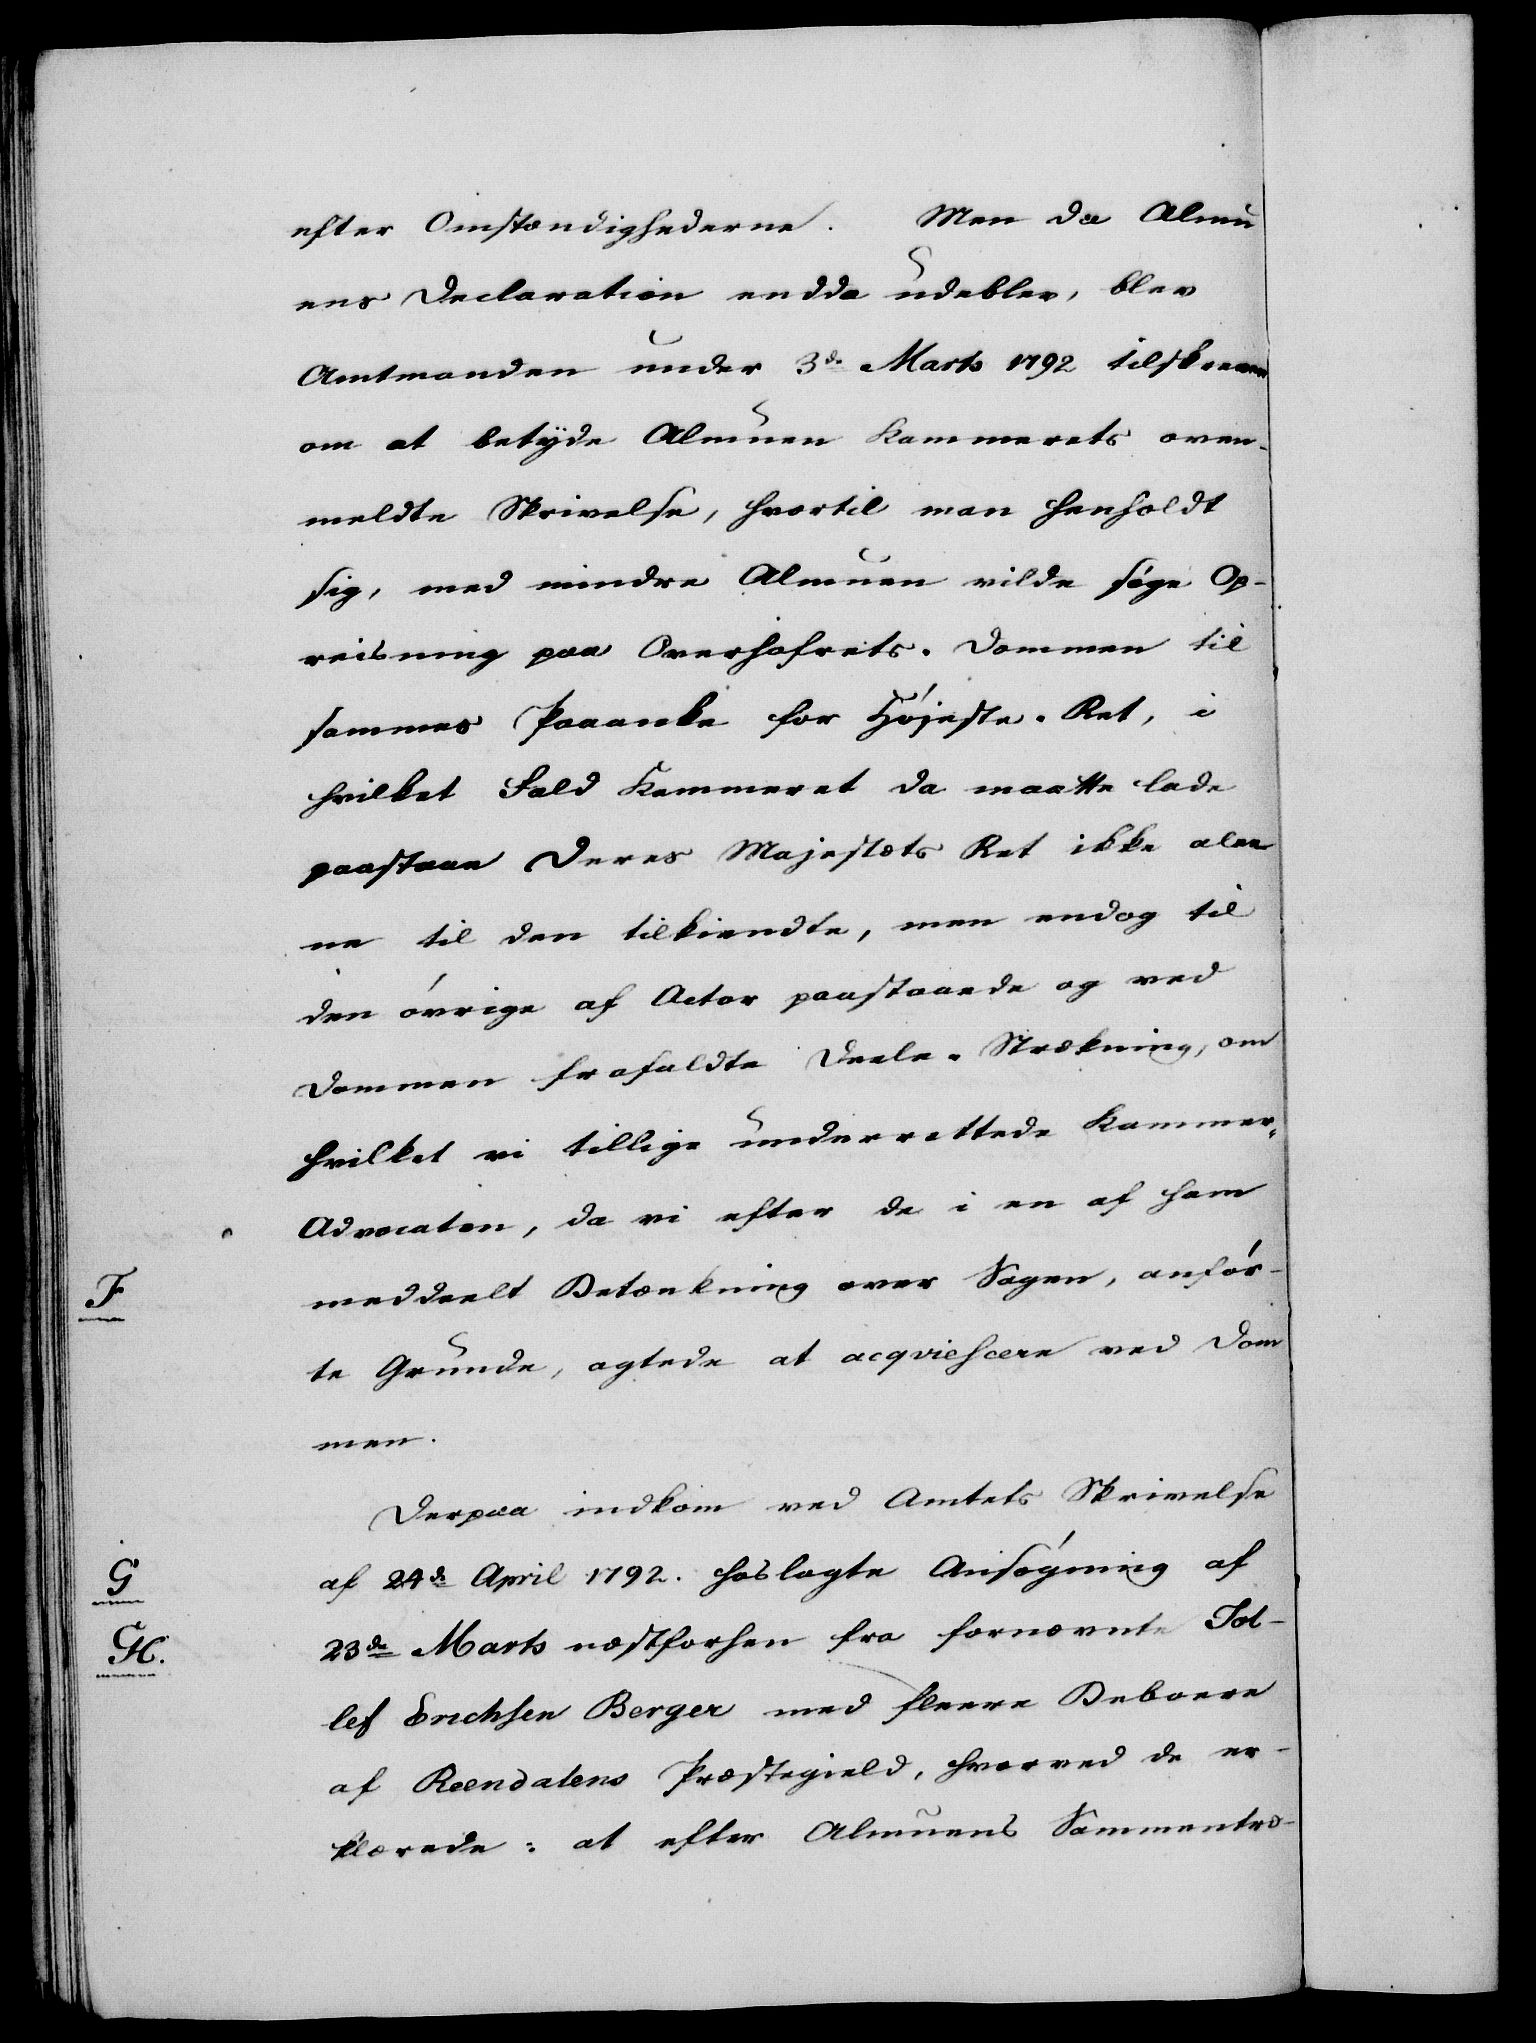 efter Omstændighederne. Men da Almu
ens Declaration endda udeblev, blev
Amtmanden under 3de Marts 1792 tilskreven
om at betyde Almuen Kammerets oven-
meldte Skrivelse, hvortil man henholdt
sig, med mindre Almuen vilde søge Op-
reisning paa Overhofrets-Dommen til
sammes Paaanke for Højeste-Ret, i
hvilket Fald Kammeret da maatte lade
paastaae Deres Majestæts Ret ikke alee
ne til den tilkiendte, men endog til
den øvrige af Actor paastaaede og ved
Dommen frafaldte Deele-Strækning, om
hvilket vi tillige underrettede Kammer-
Advocaten, da vi efter de i en af ham
F
meddeelt Betænkning over Sagen, anfør-
te Grunde, agtede at acqviescere ved Dom
men.
Derpaa indkom ved Amtets Skrivelse
G
af 24de April 1792. hoslagte Ansøgning af
H.
23de Marts næstforhen fra fornævnte Tol-
lef Erichsen Berger med fleere Beboere
af Reendalens Præstegield, hvorved de er-
klærede: at efter Almuens Sammentræ-